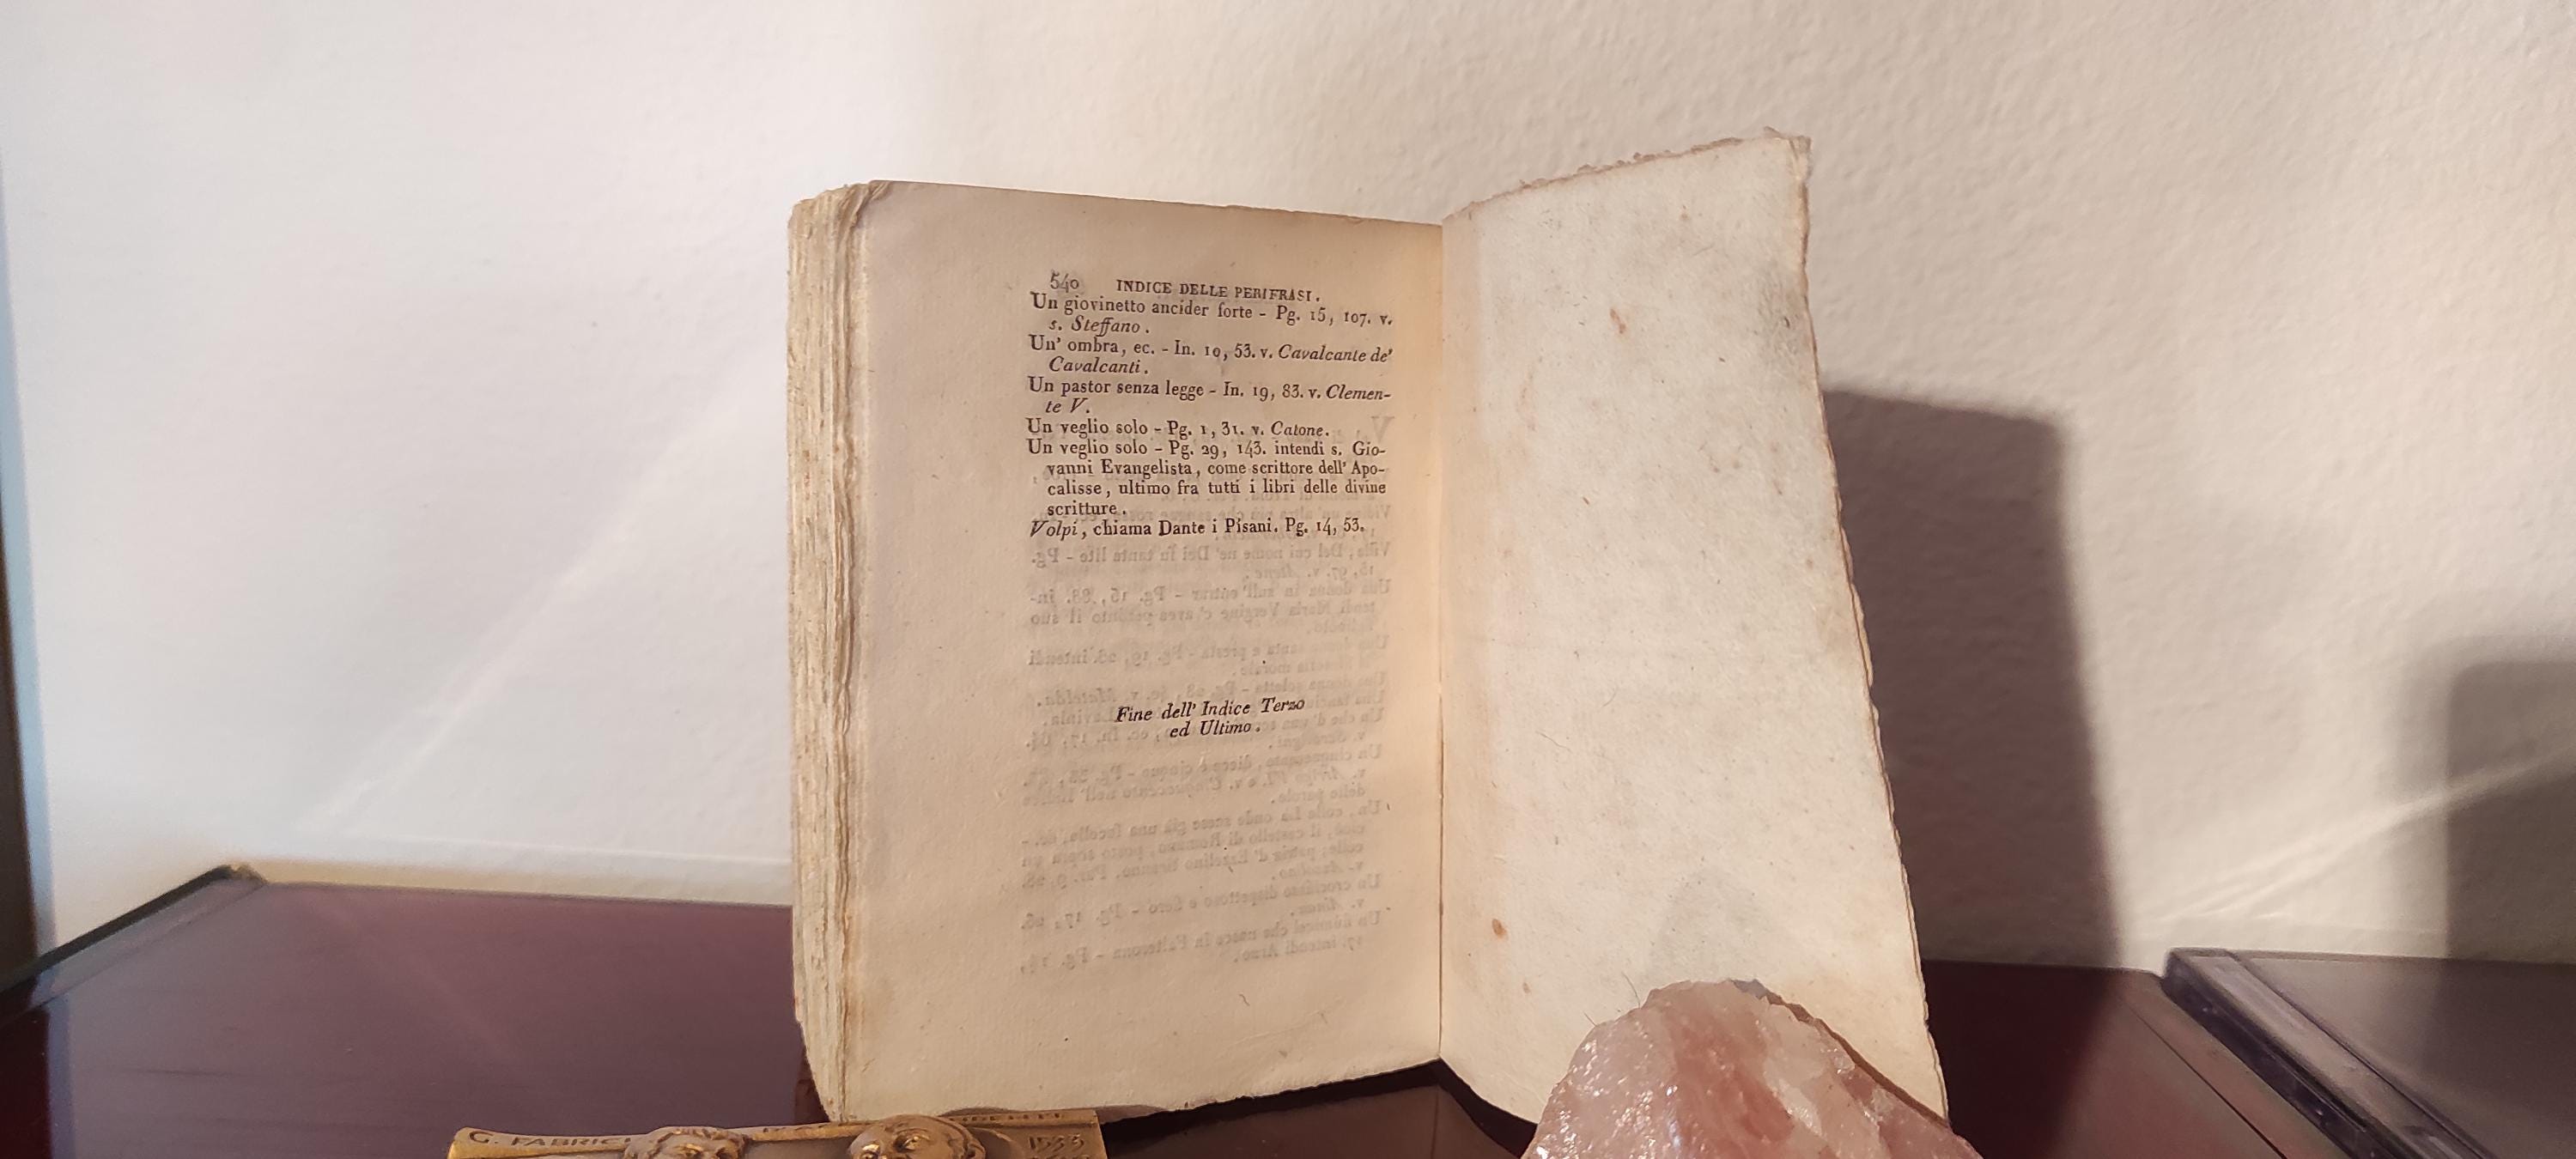 540 INDICE DELLE PERIFRASI.
Un giovinetto ancider forte - Pg. 15, 107. v.
s. Steffano.
Un' ombra, ec. - In. 10, 53. v. Cavalcante de'
Cavalcanti.
Un pastor senza legge - In. 19, 83. v. Clemen-
te V.
Un veglio solo - Pg. 1, 31. v. Catone.
Un veglio solo - Pg. 29, 143. intendi s. Gio-
vanni Evangelista, come scrittore dell' Apo-
calisse, ultimo fra tutti i libri delle divine
scritture.
Volpi, chiama Dante i Pisani. Pg. 14, 53.
Fine dell' Indice Terzo
ed Ultimo.
G. FABRICI
1533